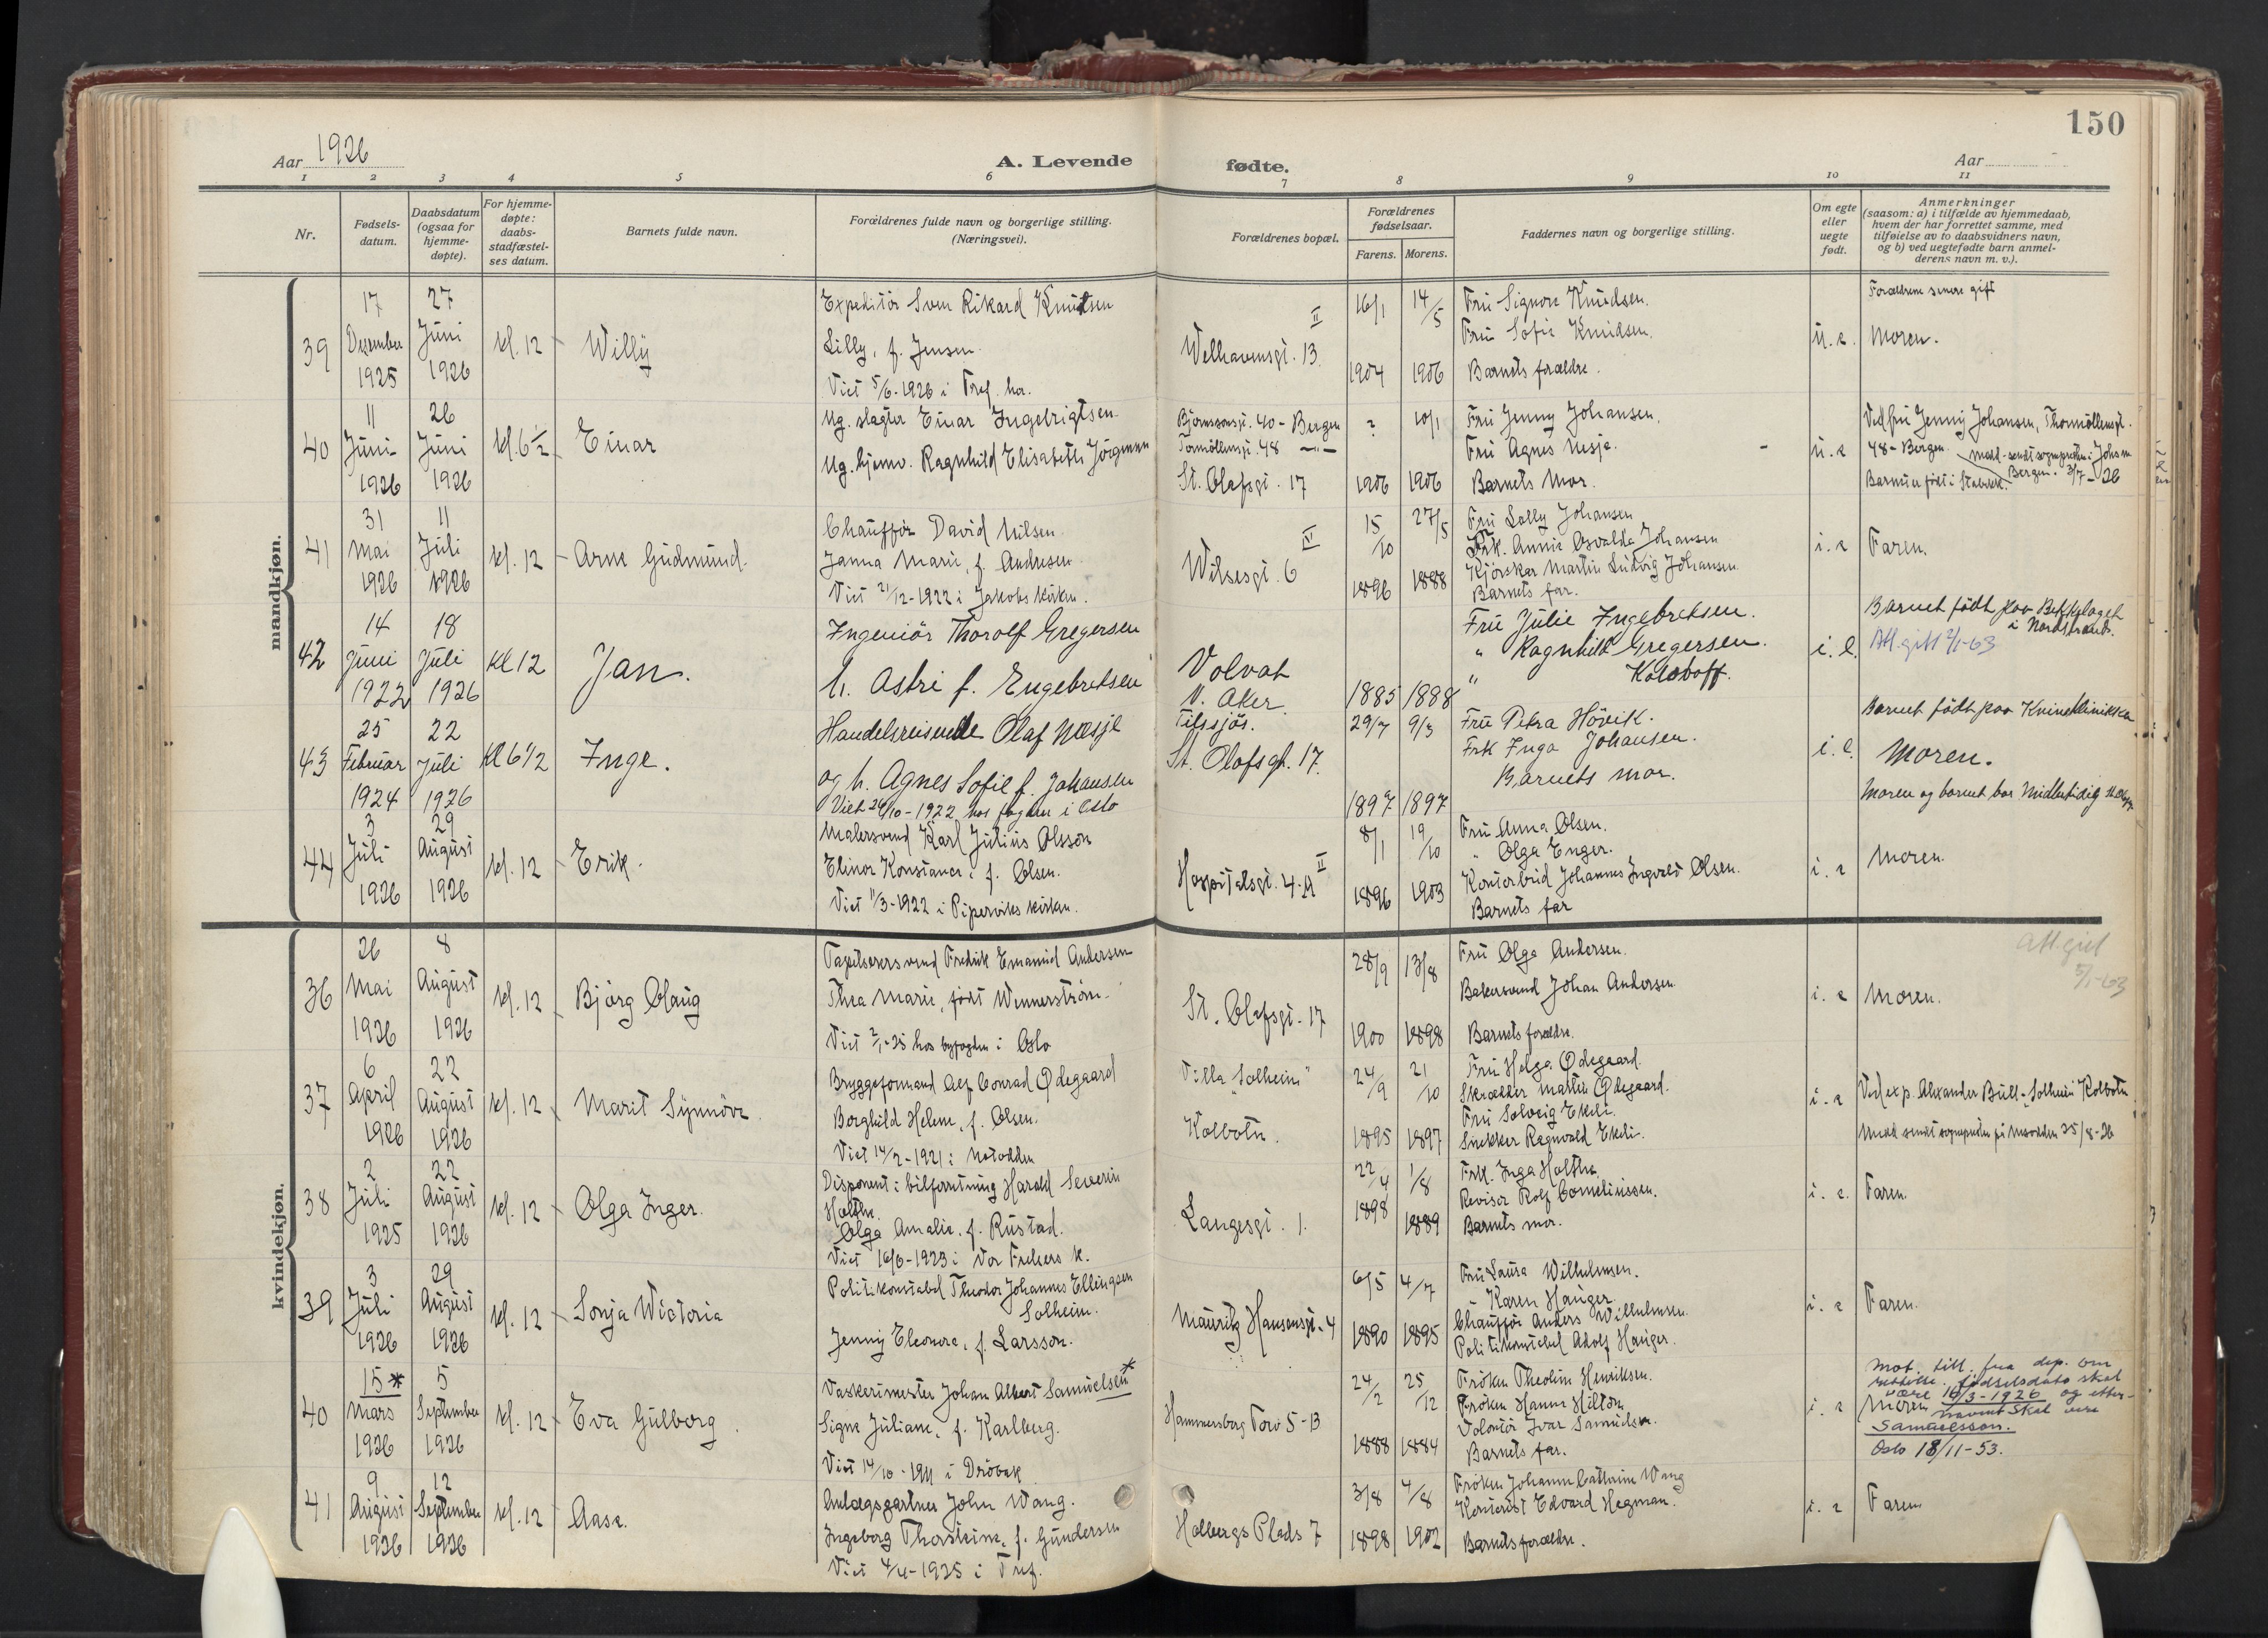 150
Aar 1926
A. Levende fødte.
Aar
1 2 3 4 5 6 7 8 9 10 11
Nr.
Fødsels-
datum.
Daabsdatum
(ogsaa for
hjemme-
døpte).
For hjemme-
døpte:
daabs-
stadfæstel-
ses datum.
Barnets fulde navn.
Forældrenes fulde navn og borgerlige stilling.
(Næringsvei).
Forældrenes bopæl.
Forældrenes
fødselsaar.
Farens. Morens.
Faddernes navn og borgerlige stilling.
Om egte
eller
uegte
født.
Anmerkninger
(saasom: a) i tilfælde av hjemmedaab,
hvem der har forrettet samme, med
tilføielse av to daabsvidners navn,
og b) ved uegtefødte barn anmel-
derens navn m. v.).
mandkjøn.
39
17
Desember
1925
27
Juni
1926
kl. 12
Willy
Expeditör Sven Rikard Knutsen
Lilly, f. Jensen.
Viet 5/6-1926 i Tref. her.
Welhavensgt. 13 II
16/1
1904
14/5
1906
Fru Signore Knudsen.
Fru Sofie Knudsen.
Barnets forældre.
u. e.
Forældrene senere gift
Moren.
40
11
Juni
1926
26
Juni
1926
kl. 6 1/2
Einar
Ug. slagter Einar Ingebrigtsen
Ug. hjemv. Ragnhild Elisabeth Jörgensen
Björnssonsgt. 40 - Bergen
Tormöllensgt. 48 -"-
St. Olafsgt. 17
?
1906
10/1
1906
Fru Jenny Johansen.
Fru Agnes Nesje.
Barnets mor.
u. e
Ved fru Jenny Johansen, Thormöllensgt.
48 - Bergen. Meld. sendt sogneprsten i Johs m
Bergen. 3/7-26
Barnet er födt i Stavern.
41
31
Mai
1926
11
Juli
1926
kl. 12
Arne Gudmund.
Chaufför David Nilsen
Janna Marie, f. Andresen
Viet 21/12-1922 i Jakobs kirken.
Wilsesgt. 6 III
15/10
1896
27/5
1888
Fru Lolly Johansen
Frk. Annie Osvalda Johansen
Kjörskar Martin Ludvig Johansen.
Barnets far.
i. e
Faren.
42
14
Juni
1922
18
Juli
1926
Kl 12
Jan.
Ingeniör Thorolf Gregersen
h. Astri f. Engebretsen
Volvat
V. Aker
1885
1888
Fru Julie Ingebretsen.
" Ragnhild Gregersen.
" Kolstoff.
i. e.
Barnet födt paa Bekkelaget
i Nordstrand.
Att. gitt 2/1-63
43
25
Februar
1924
22
Juli
1926
Kl 6 1/2
Inge.
Handelsreisende Olaf Næsje
og h. Agnes Sofie f. Johansen
Viet 24/10-1922 hos fogden i Oslo
Tilssjös.
St. Olafsgt. 17.
29/7
1897
9/3
1897
Fru Petra Hövik.
Frk Inga Johansen.
Barnets mor.
i. e.
Barnet födt paa Kvinneklinikken
Moren.
Moren og barnet bor midlertidig St. Olafsgt.
44
3
Juli
1926
29
August
1926
kl. 12
Erik.
Malersvend Karl Julius Olsson
Elinor Konstance, f. Olsen.
Viet 11/3-1922 i Piperviks kirken.
Hospitalsgt. 4-A II
8/1
1896
19/10
1903
Fru Anna Olsen.
" Olga Enger.
Kontorbud Johannes Ingvald Olsen.
Barnets far
i. e
Moren.
kvindekjøn.
36
26
Mai
1926
8
August
1926
kl. 12
Björg Olaug
Tapetserersvend Fredrik Emanuel Andersen
Thea Marie, födt Wennerström.
Viet 2/1-25 hos byfogden i Oslo
St. Olafsgt. 17
28/9
1900
13/8
1898
Fru Olga Andersen.
Bakersvend Johan Andersen
Barnets forældre.
i. e
Moren.
Att. gitt
5/1-63
37
6
April
1926
22
August
1926
kl. 12
Marit Synnöve
Bryggeformand Alf Conrad Ødegaard
Borghild Helene, f. Olsen.
Viet 14/2-1921 i Notodden
Villa "Solheim"
Kolbotn.
24/9
1895
21/10
1897
Fru Helga Ødegaard.
Skrædder Martin Ødegaard.
Fru Solveig Ekeli.
Snekker Ragnvald Ekeli.
i. e
Ved exp. Alexander Bull - Solheim Kolbotn
Meld sendt sogneprsten på Nesodden 25/8-26
38
2
Juli
1925
22
August
1926
kl. 12
Olga Inger.
Disponent i bilforretning Harald Severin
Holthe.
Olga Amalie, f. Rustad.
Viet 16/6-1923 i Vor Frelsers k.
Langesgt. 1.
22/4
1898
1/8
1889
Frk. Inga Holthe
Revisor Rolf Corneliussen.
Barnets mor.
i. e.
Faren.
39
3
Juli
1926
29
August
1926
kl. 12
Sonja Wictoria
Politikonstabel Theodor Johannes Ellingsen
Solheim.
Jenny Eleonora, f. Larsson.
Mauritz Hansensgt. 4
6/5
1890
4/7
1895
Fru Laura Wilhelmsen.
" Karen Hauger.
Chaufför Anders Wilhelmsen.
Politikonstabel Adolf Hauger.
i. e
Faren.
40
15*
Mars
1926
5
September
1926
kl. 12
Eva Gulborg.
Vaskerimester Johan Albert Samuelsen*
Signe Juliane, f. Karlberg.
Viet 14/10-1911 i Dröbak
Hammersborg Torv 5-B
24/2
1888
25/12
1884
Fröken Theoline Henriksen.
Fröken Hanna Hilton
Volontör Ivar Samuelsen.
Barnets far.
i. e
Mot. till. fra dep. om
rettelse. fødselsdato skal
være 16/3-1926 og etter-
Moren navnet skal være
Samuelsson.
Oslo 18/11-53.
41
9
August
1926
12
September
1926
kl. 12
Aase.
Anlægsgartner John Wang.
Ingeborg Thorsteina, f. Gundersen
Viet 4/4-1925 i Tref.
Holbergs Plads 7
3/8
1898
4/8
1902
Fröken Johanne Cathrine Wang
Kontorist Edvard Hegman.
Barnets forældre.
i. e
Faren